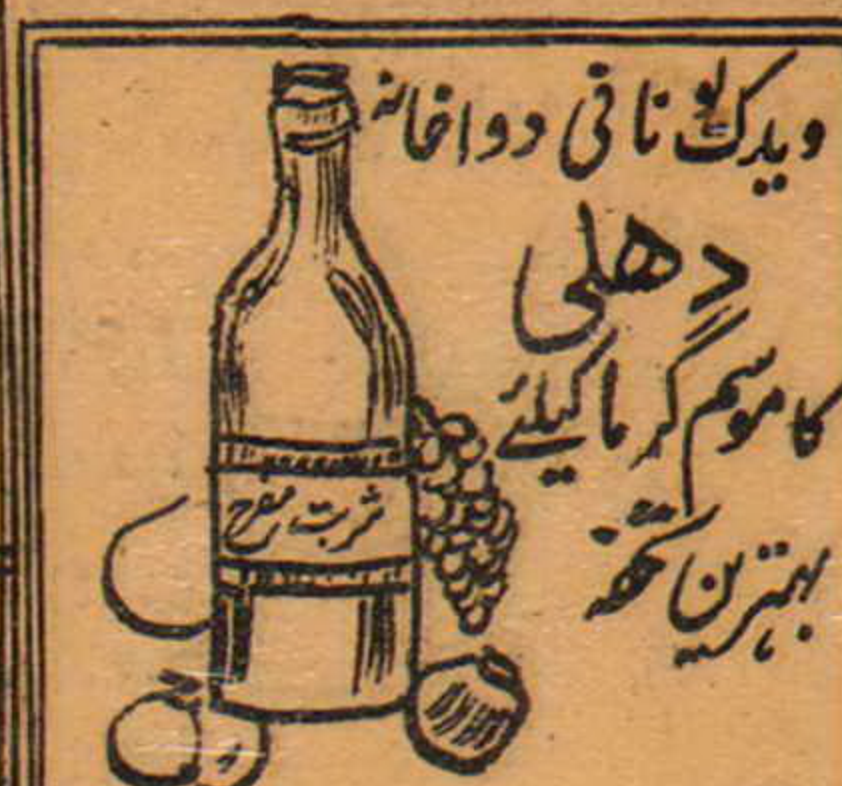 ویدک یونانی دواخانہ
دھلی
کا موسم گرما کیلئے
بہترین تحفہ
شربت مفرح